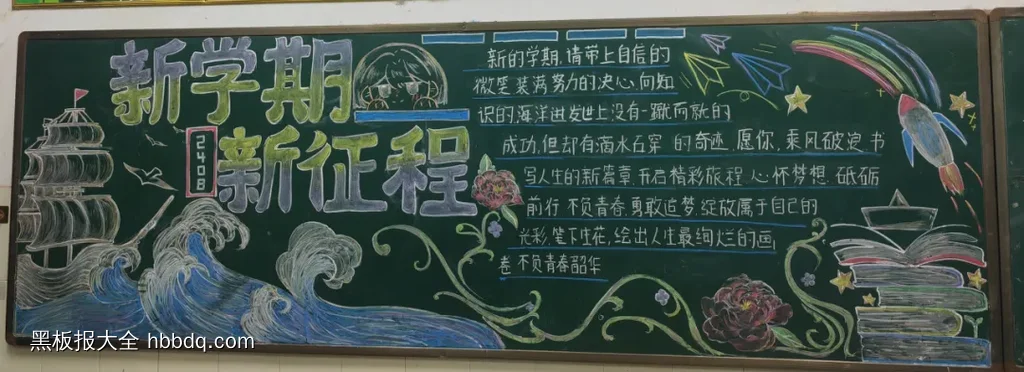 新学期
新征程
2408
新的学期,请带上自信的
微笑装满努力的决心,向知
识的海洋进发世上没有一蹴而就的
成功,但却有滴水石穿 的奇迹.愿你,乘风破浪 书
写人生的新篇章.开启精彩旅程.心怀梦想.砥砺
前行 不负青春.勇敢追梦.绽放属于自己的
光彩.笔下生花,绘出人生最绚烂的画
卷 不负青春韶华
黑板报大全 hbbdq.com